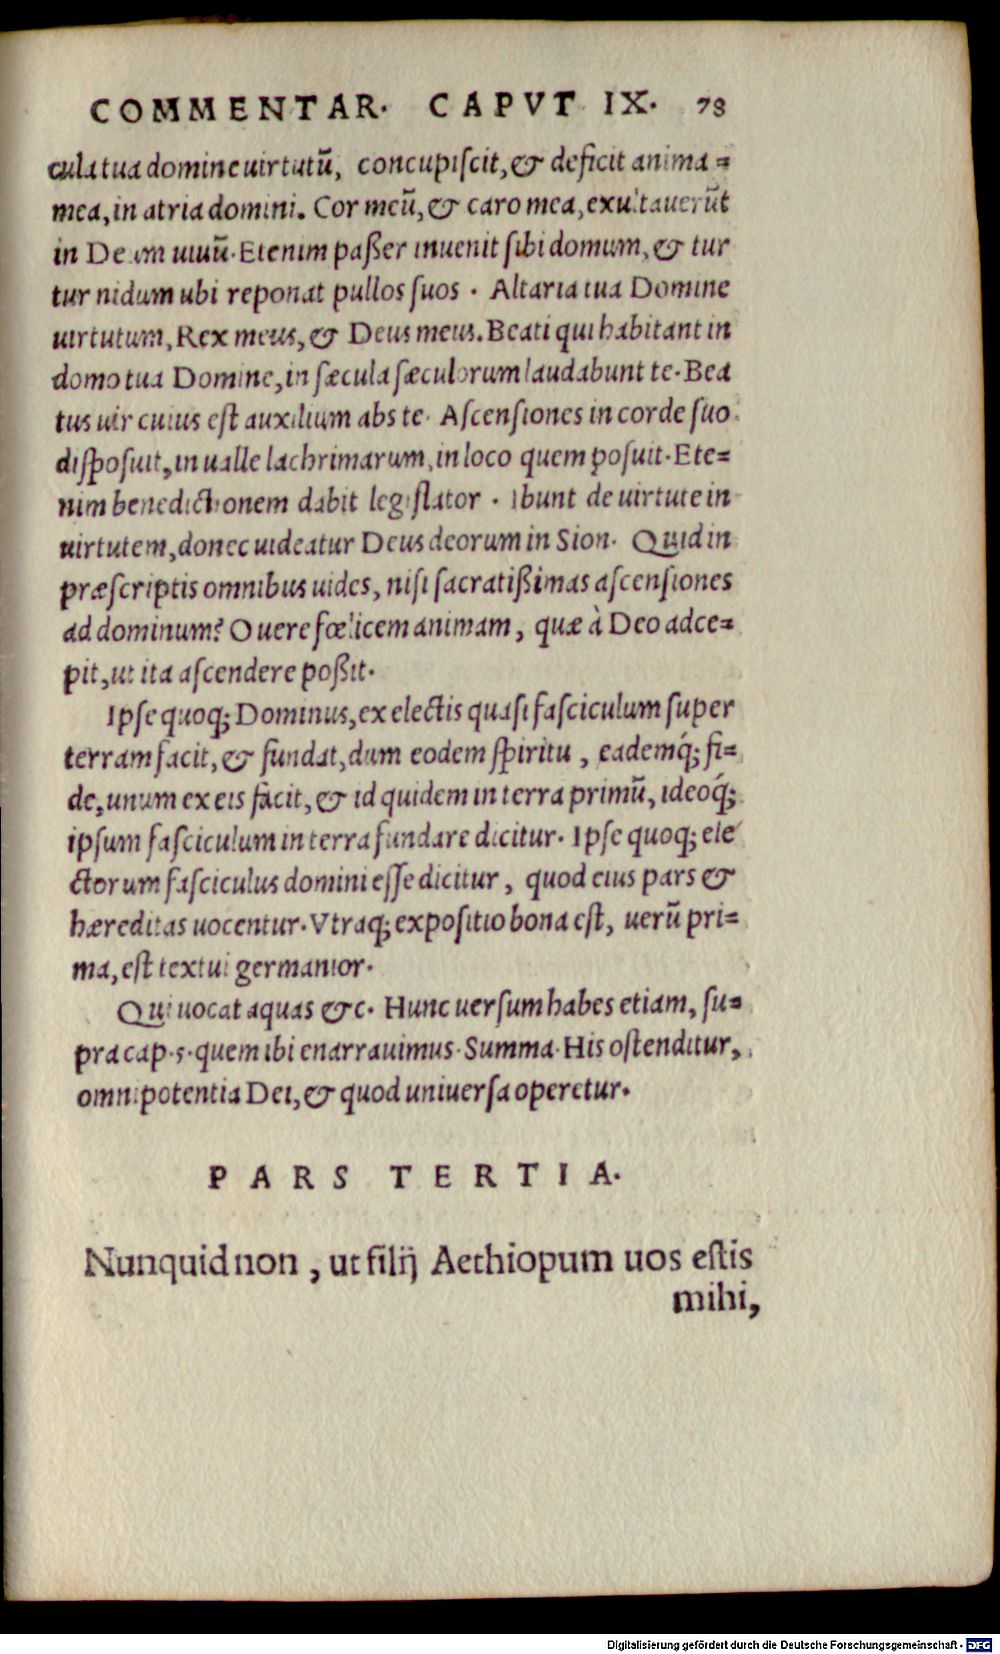 COMMENTAR. CAPVT IX. 78
cula tua domine uirtutū, concupiſcit, & deficit anima =
mea, in atria domini. Cor meū, & caro mea, exultauerūt
in Deum uiuū. Etenim paßer inuenit ſibi domum, & tur
tur nidum ubi reponat pullos ſuos . Altaria tua Domine
uirtutum, Rex meus, & Deus meus. Beati qui habitant in
domo tua Domine, in ſæcula ſæculorum laudabunt te. Bea
tus uir cuius eſt auxilium abs te. Aſcenſiones in corde ſuo
diſpoſuit, in ualle lachrimarum, in loco quem poſuit. Ete=
nim benedictionem dabit legiſlator . Ibunt de uirtute in
uirtutem, donec uideatur Deus deorum in Sion. Quid in
præſcriptis omnibus uides, niſi ſacratißimas aſcenſiones
ad dominum? O uere fœlicem animam, quæ à Deo adce=
pit, ut ita aſcendere poßit.
Ipſe quoq; Dominus, ex electis quaſi faſciculum ſuper
terram facit, & fundat, dum eodem ſpiritu, eademq́; fi=
de, unum ex eis facit, & id quidem in terra primū, ideoq́;
ipſum faſciculum in terra fundare dicitur. Ipſe quoq; ele
ctorum faſciculus domini eſſe dicitur, quod eius pars &
hæreditas uocentur. Vtraq; expoſitio bona eſt, uerū pri=
ma, eſt textui germanior.
Qui uocat aquas &c. Hunc uerſum habes etiam, ſu=
pra cap. 5. quem ibi enarrauimus. Summa. His oſtenditur,
omnipotentia Dei, & quod uniuerſa operetur.
PARS TERTIA.
Nunquid non, ut filij Aethiopum uos eſtis
mihi,
Digitalisierung gefördert durch die Deutsche Forschungsgemeinschaft - DFG